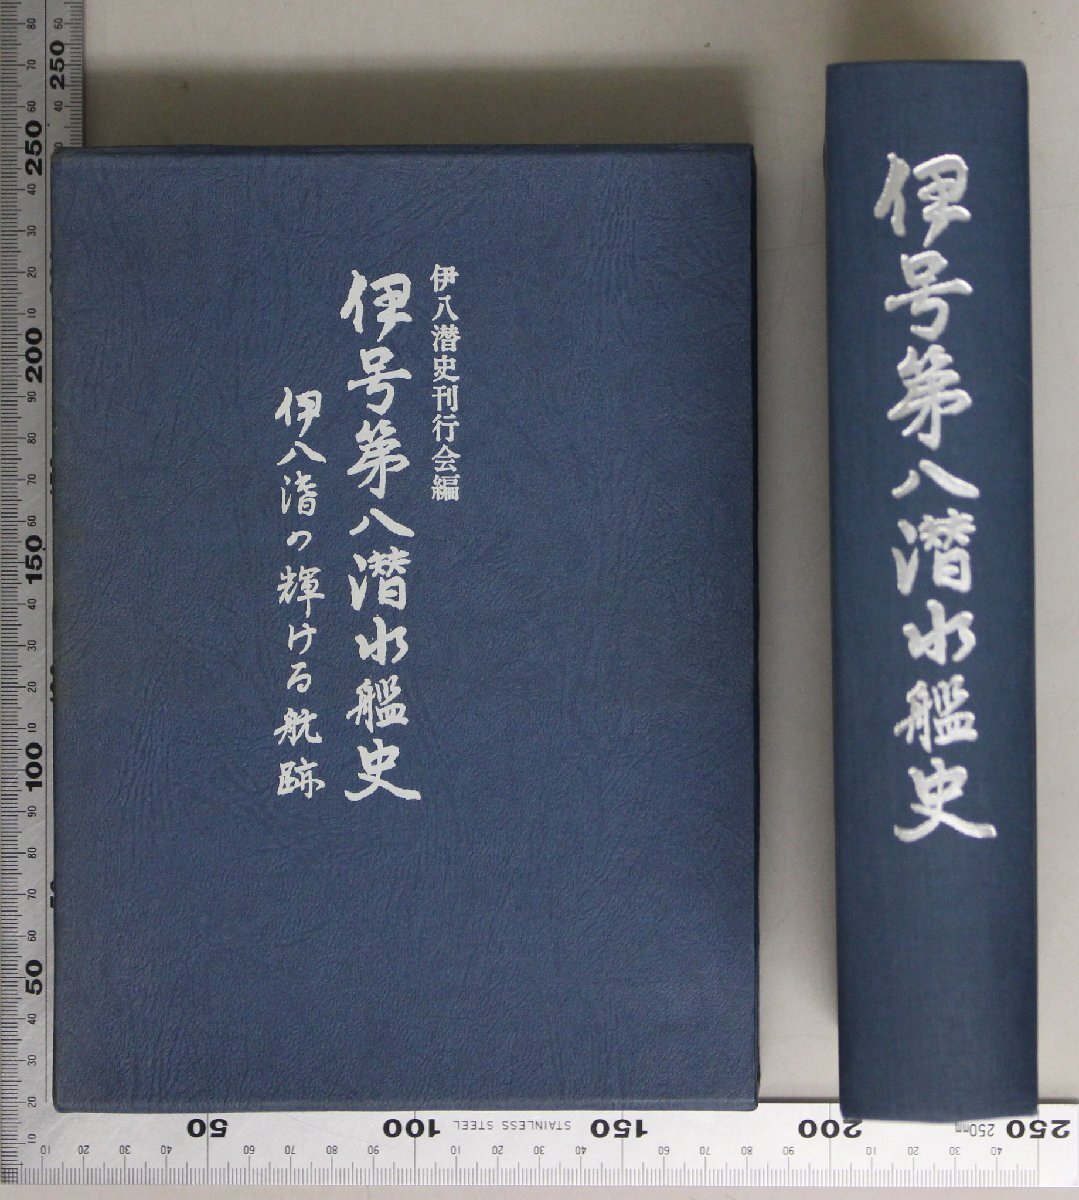 伊八潜史刊行会編
伊号第八潜水艦史
伊八潜の輝ける航跡
伊号第八潜水艦史
250
200
150
100
50
250
50
100
STAINLESS STEEL
150
200
250mm
250